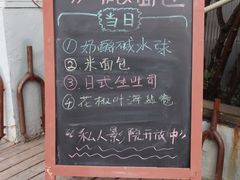 当日
①奶酪碱水球
②米面包
③日式生吐司
④花椒叶海盐卷
“私人影院开放中”